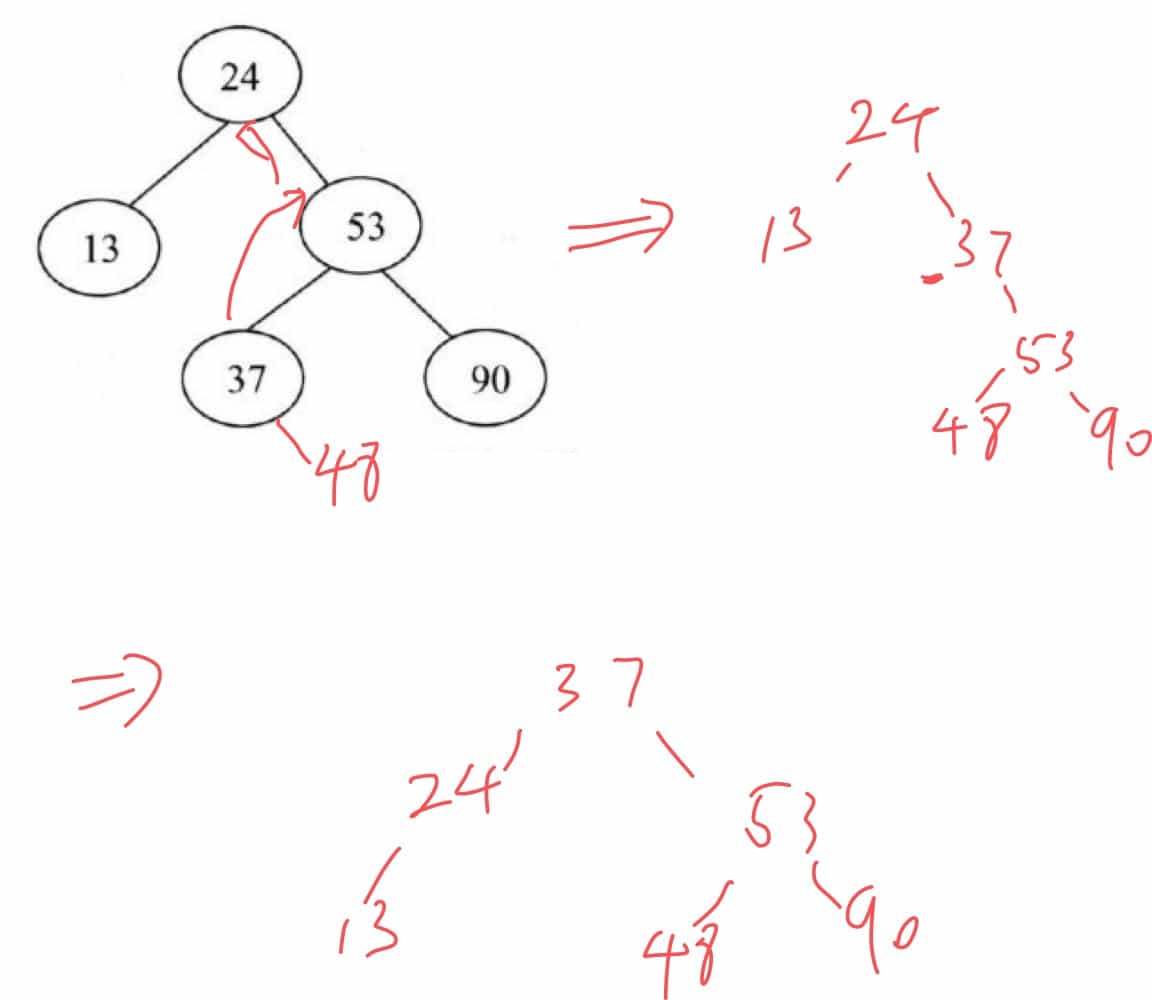 24
13
53
37
90
48
⇒
24
13
37
53
48
90
⇒
37
24
53
13
48
90